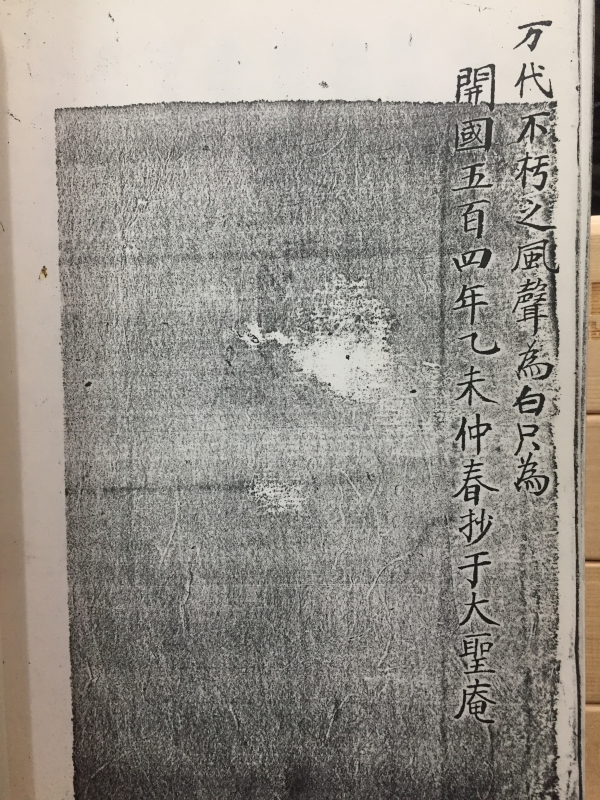 万代不朽之風聲為白只為
開國五百四年乙未仲春抄于大聖庵